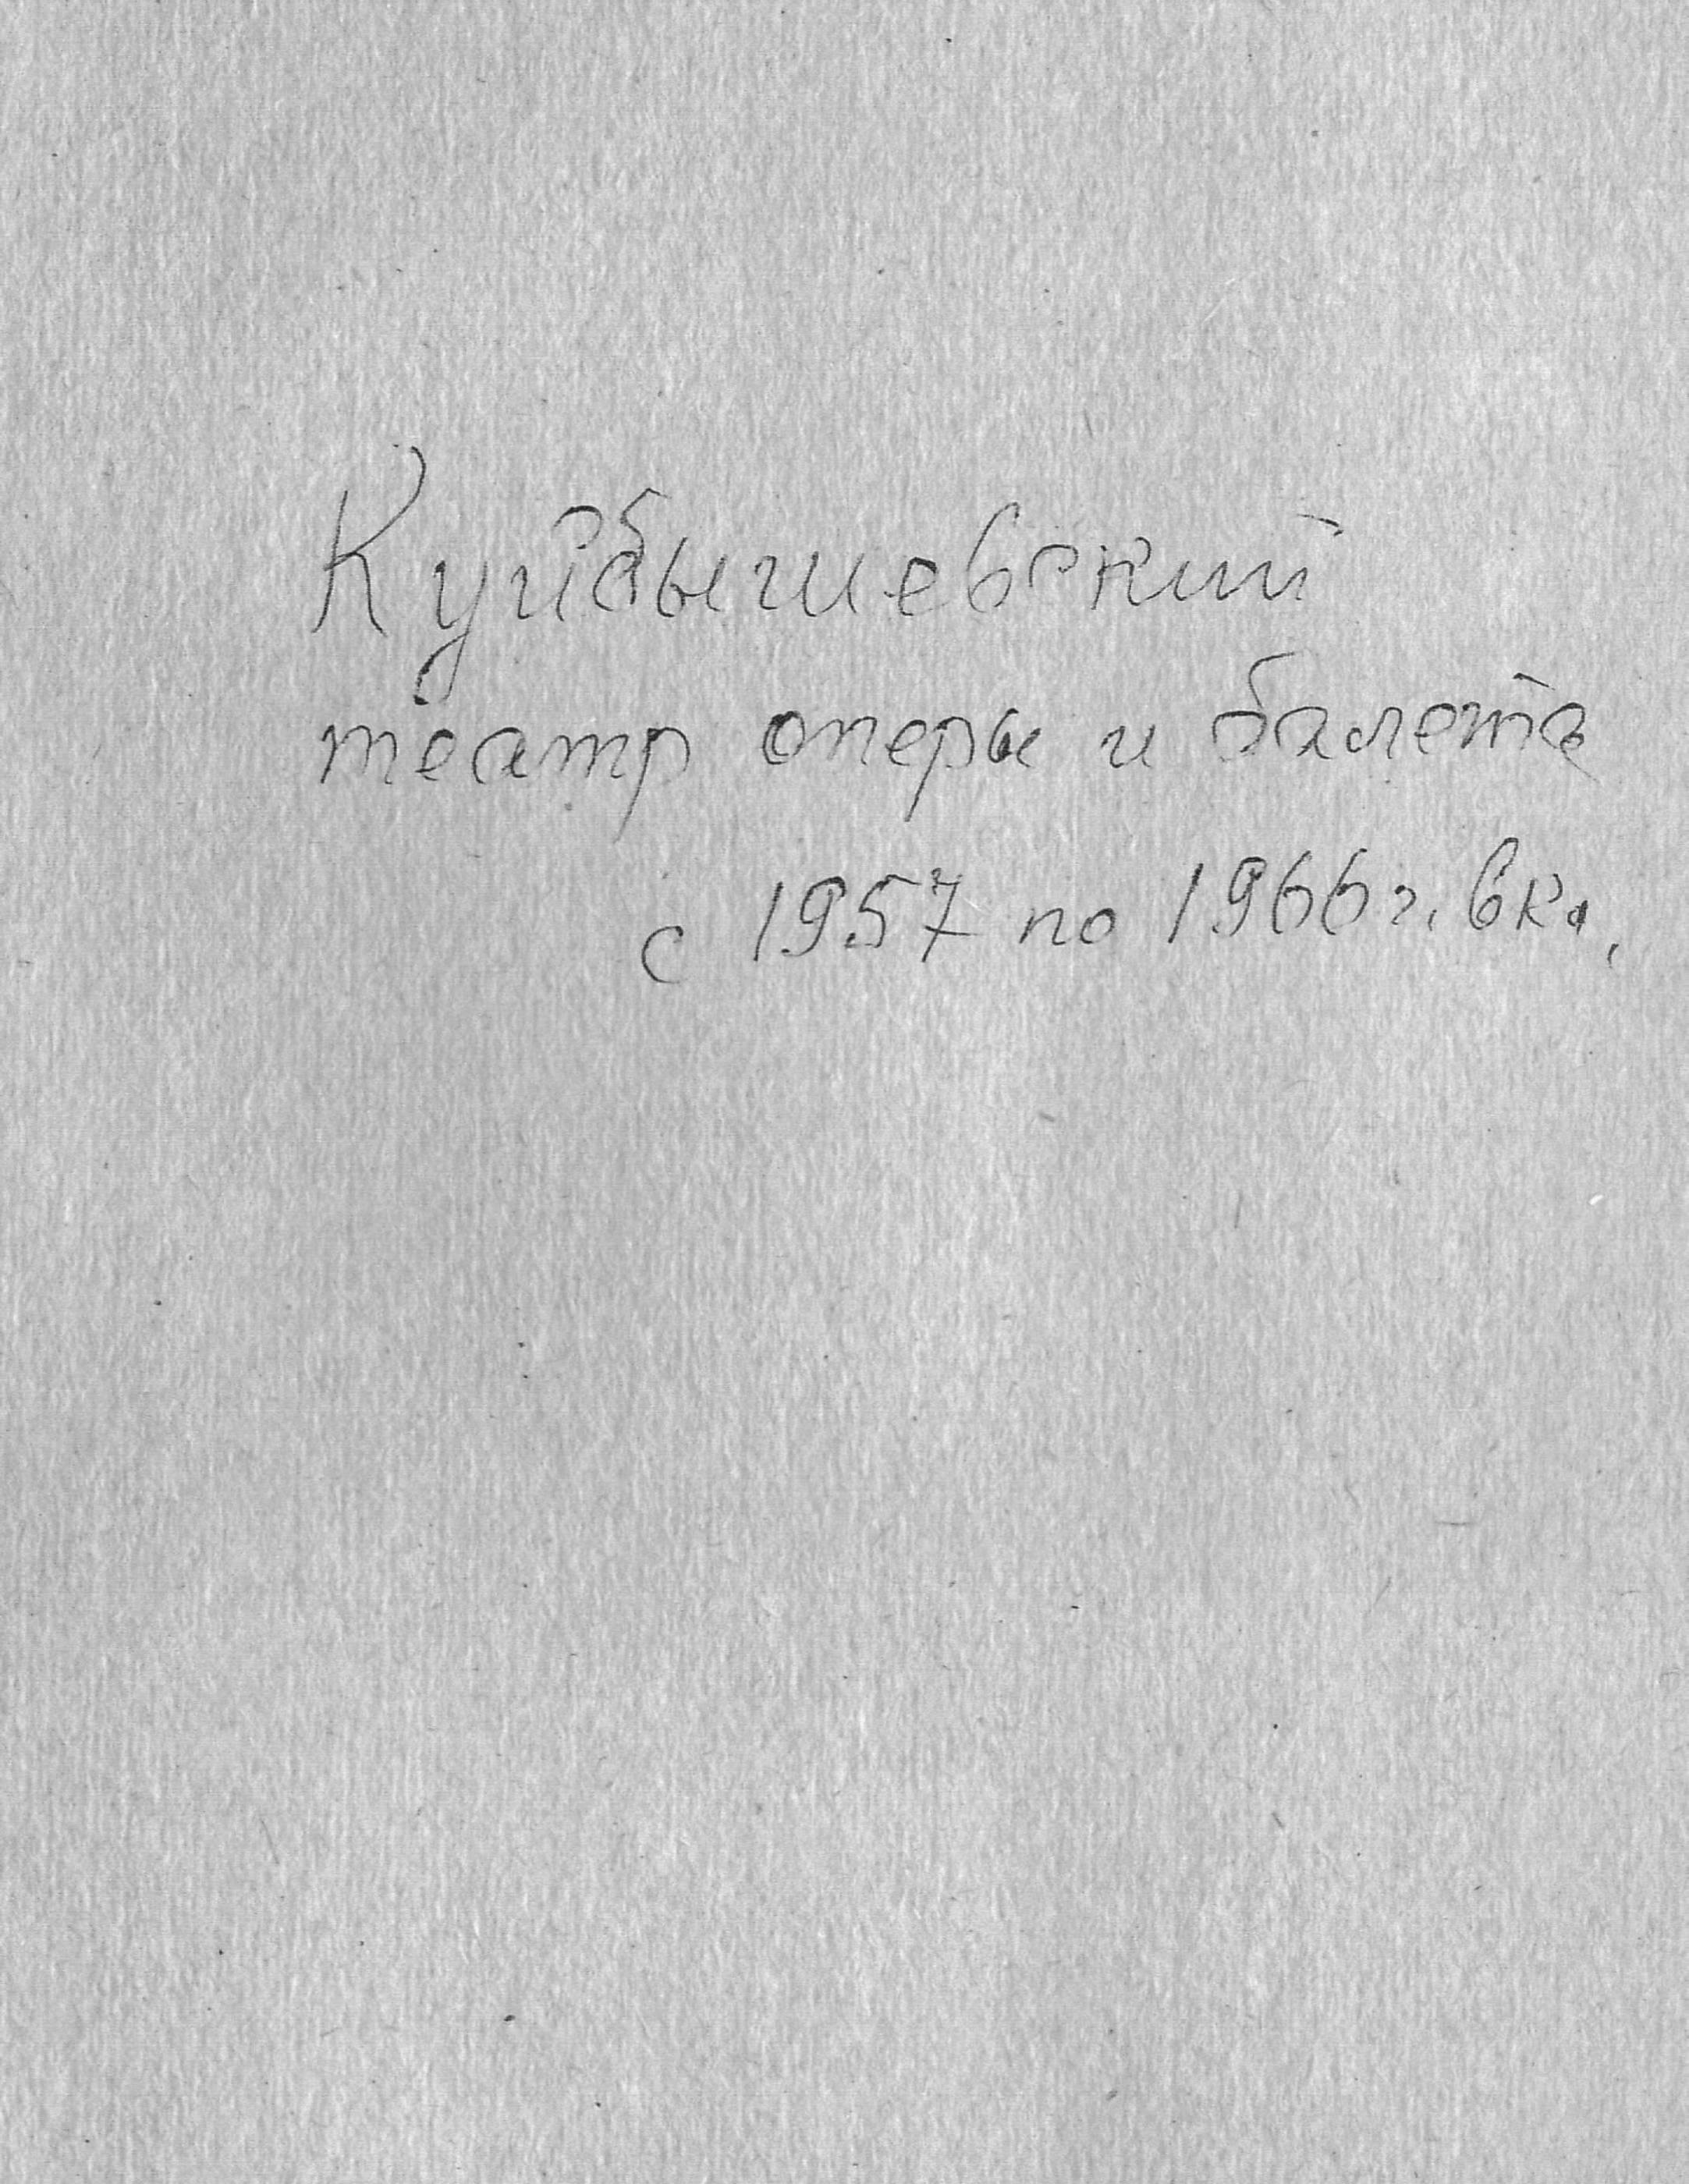 Куйбышевский
театр оперы и балета
с 1957 по 1966 г. вкл.